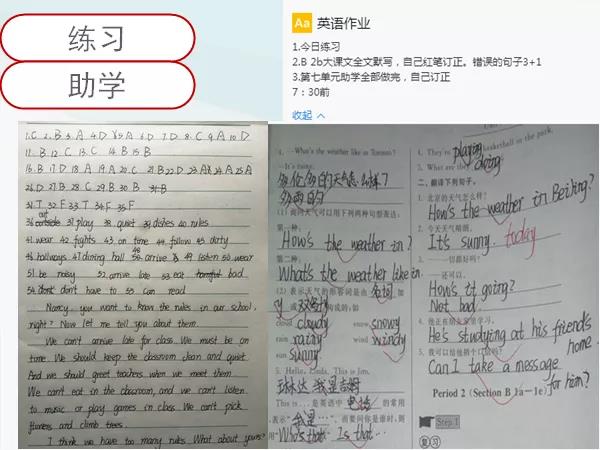 练习
助学
Aa 英语作业
1.今日练习
2.B 2b大课文全文默写，自己红笔订正。错误的句子3+1
3.第七单元助学全部做完，自己订正
7：30前
收起
1.C 2.B 3.A 4.D 5.A 6.D 7.D 8.C 9.A 10.D
11.B 12.C 13.C 14.B 15.B
16.B 17.D 18.A 19.A 20.C 21.B 22.D 23.A 24.A 25.A
26.D 27.B 28.C 29.B 30.B 31.B
31.T 32.F 33.T 34.F 35.F
36. out 37. play 38. quiet 39. dishes 40. rules
41. wear 42. fights 43. on time 44. follow 45. dirty
46. hallways 47. dining hall 48. arrive 49. listen 50. wear
51. be noisy 52. arrive late 53. eat bad
54. don't have to 55. Can read
Nancy, you want to know the rules in our school,
right? Now let me tell you about them.
We can't arrive late for class. We must be on
time. We should keep the classroom clean and quiet.
And we should greet teachers when we meet them.
We can't eat in the classroom, and we can't listen
to music or play games in class. We can't pick
flowers and climb trees.
I think we have too many rules. What about yours?
4. —What's the weather like in Toronto?
—It's raining.
多伦多的天气怎么样?
多雨的
(1) 询问天气可以用下列两种句型表达:
第一种:
How's the weather in?
第二种:
What's the weather like in.
(2) 表示天气的形容词是由名词加
y
cloud cloudy snow snowy
rain rainy wind windy
sun sunny
5. Hello, Linda. This is Jim.
琳达 我是吉姆
This is...是英语中电话的常用
表示"我是..."，而要问你是谁时，则
用"Who's that Is that...
4. They're playing basketball in the park.
5. What are they doing
二、翻译下列句子。
1. 北京的天气怎么样?
How's the weather in Beijing?
2. 今天天气晴朗。
It's sunny. today
3. —一切都好吗?
—还可以。
How's it going?
Not bad.
4. 他正在朋友家里学习。
He's studying at his friend's
home.
5. 我可以给他捎个口信吗?
Can I take a message
for him?
Period 2 (Section B 1a—1e)
Step 1
复习